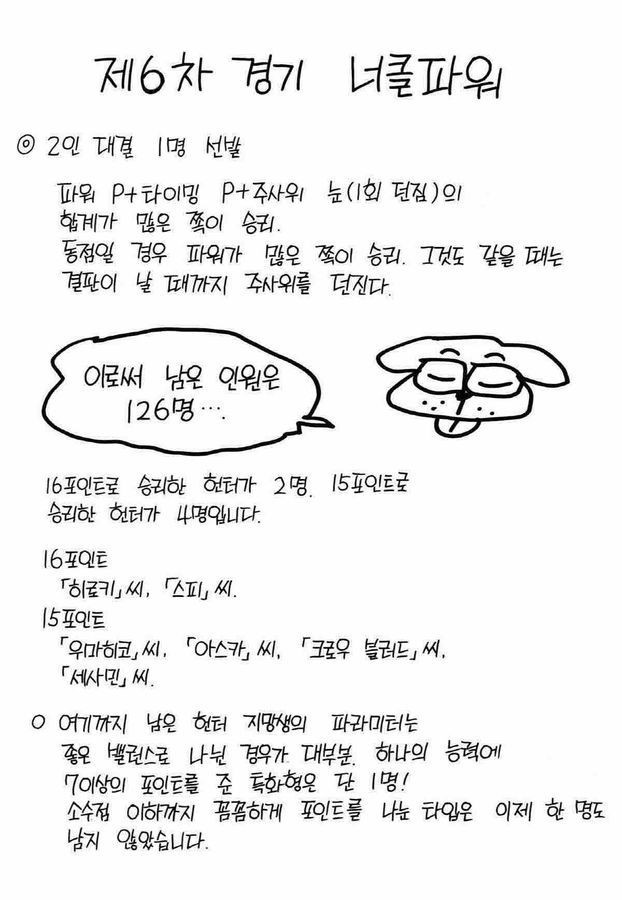 제6차 경기 너클파워
◎ 2인 대결 1명 선발
파워 P+타이밍 P+주사위 눈(1회 던짐)의
합계가 많은 쪽이 승리.
동점일 경우 파워가 많은 쪽이 승리. 그것도 같을 때는
결판이 날 때까지 주사위를 던진다.
이로써 남은 인원은
126명….
16포인트로 승리한 헌터가 2명. 15포인트로
승리한 헌터가 4명입니다.
16포인트
「히로키」씨, 「스피」씨.
15포인트
「우마히코」씨, 「아스카」씨, 「크로우 블러드」씨,
「세사민」씨.
○ 여기까지 남은 헌터 지망생의 파라미터는
좋은 밸런스로 나뉜 경우가 대부분. 하나의 능력에
7이상의 포인트를 준 특화형은 단 1명!
소수점 이하까지 꼼꼼하게 포인트를 나눈 타입은 이제 한 명도
남지 않았습니다.